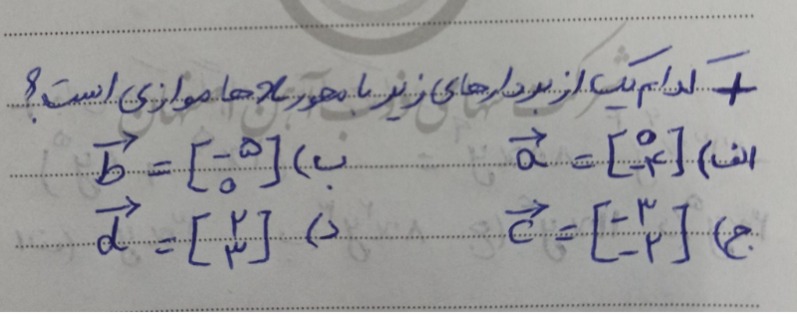 کدام یک از بردارهای زیر با محور xها موازی است؟
الف) a⃗ = [0 -۴] ب) b⃗ = [-۵ 0]
ج) c⃗ = [-۳ -۲] د) d⃗ = [۲ ۳]